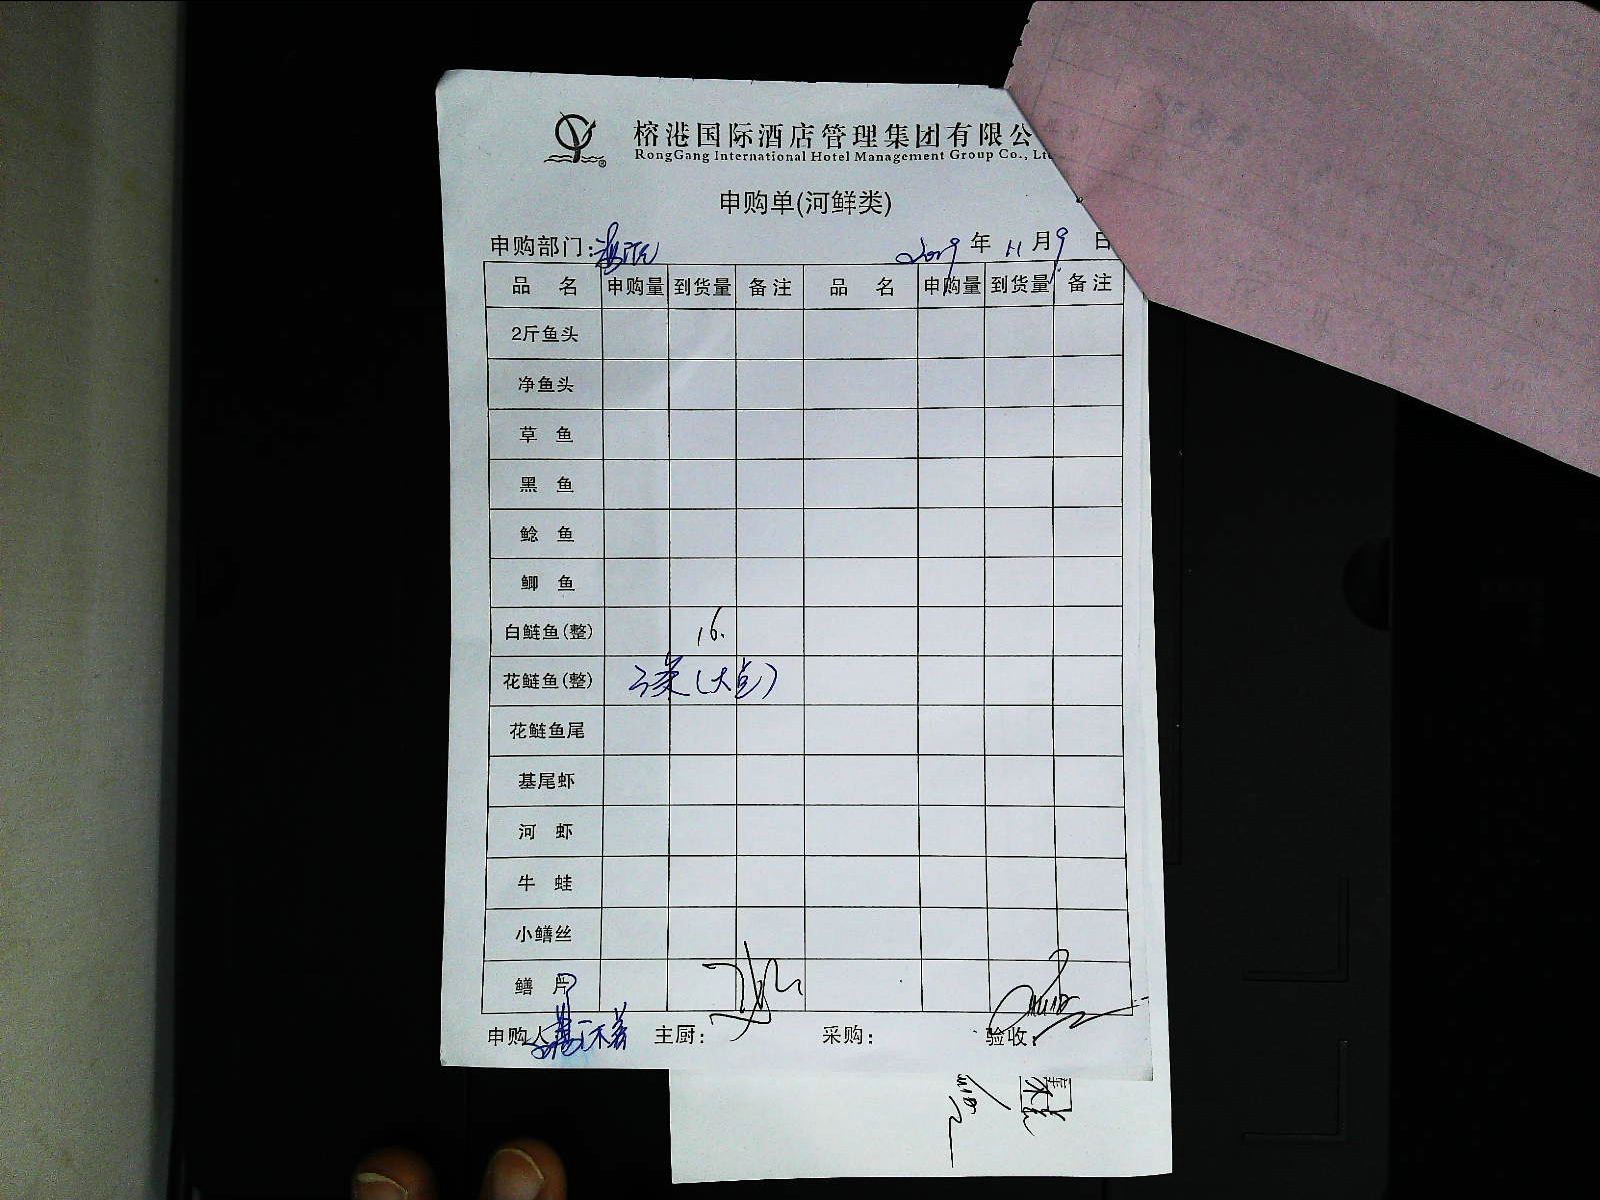 榕港国际酒店管理集团有限公
RongGang International Hotel Management Group Co., Lt
申购单(河鲜类)
申购部门: 2019 年 11 月 9 日
品 名 申购量 到货量 备注 品 名 申购量 到货量 备注
2斤鱼头
净鱼头
草 鱼
黑 鱼
鲶 鱼
鲫 鱼
白鲢鱼(整) 16.
花鲢鱼(整)
花鲢鱼尾
基尾虾
河 虾
牛 蛙
小鳝丝
鳝 片
申购人 主厨: 采购: 验收: